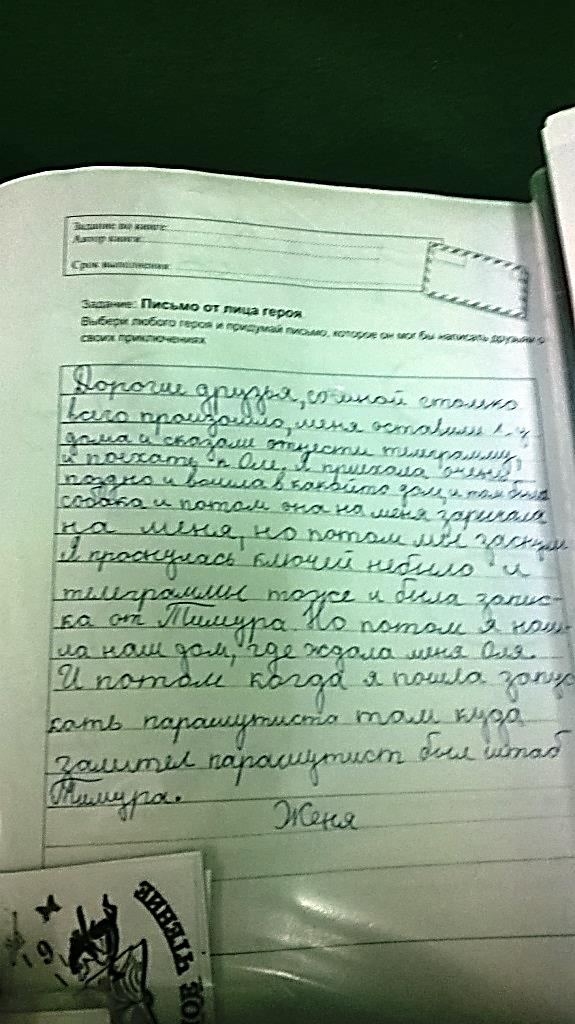 Задание по книге:
Автор книги:
Срок выполнения:
Задание: Письмо от лица героя
Выбери любого героя и придумай письмо, которое он мог бы написать друзьям о
своих приключениях
Дорогие друзья, со мной столько
всего произошло, меня оставили
дома и сказали отнести телеграмму,
и поехать к Оле. Я приехала очень
поздно и вошла в какойто дом, и там была
собака и потом она на меня зарычала
на меня, но потом мы заснули
Я проснулась ключей небыло и
телеграммы тоже и была запис-
ка от Тимура. Но потом я наш-
ла наш дом, где ждала меня Оля.
И потом когда я пошла запус
кать парашутиста там куда
залител парашутист был штаб
Тимура.
Женя